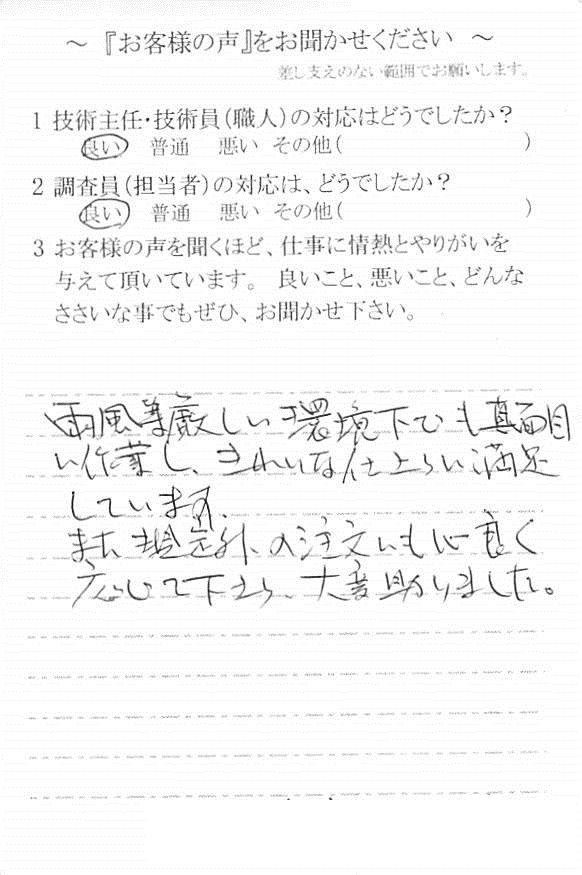 ～『お客様の声』をお聞かせください ～
差し支えのない範囲でお願いします。
1 技術主任・技術員(職人)の対応はどうでしたか?
良い 普通 悪い その他( )
2 調査員(担当者)の対応は、どうでしたか?
良い 普通 悪い その他( )
3 お客様の声を聞くほど、仕事に情熱とやりがいを
与えて頂いています。 良いこと、悪いこと、どんな
ささいな事でもぜひ、お聞かせ下さい。
雨風等厳しい環境下でも真面目
に作業し、きれいな仕上りに満足
しています。
また 想定外の注文にも心良く
応じて下さり、大変助かりました。